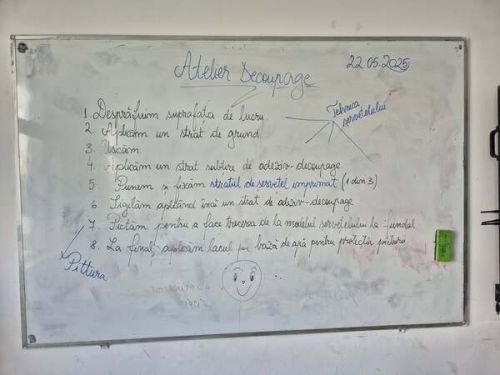 Atelier Decoupage
22.05.2025
Tehnica
servețelului
1. Desprăfuim suprafața de lucru
2. Aplicăm un strat de grund
3. Uscăm
4. Aplicăm un strat subțire de adeziv-decoupage
5. Punem și fixăm stratul de servețel imprimat (1 din 3)
6. Sigilăm aplicând încă un strat de adeziv-decoupage
7. Pictăm pentru a face trecerea de la modelul servețelului la fundal
8. La final, aplicăm lacul pe bază de apă pentru protecția
Pittura